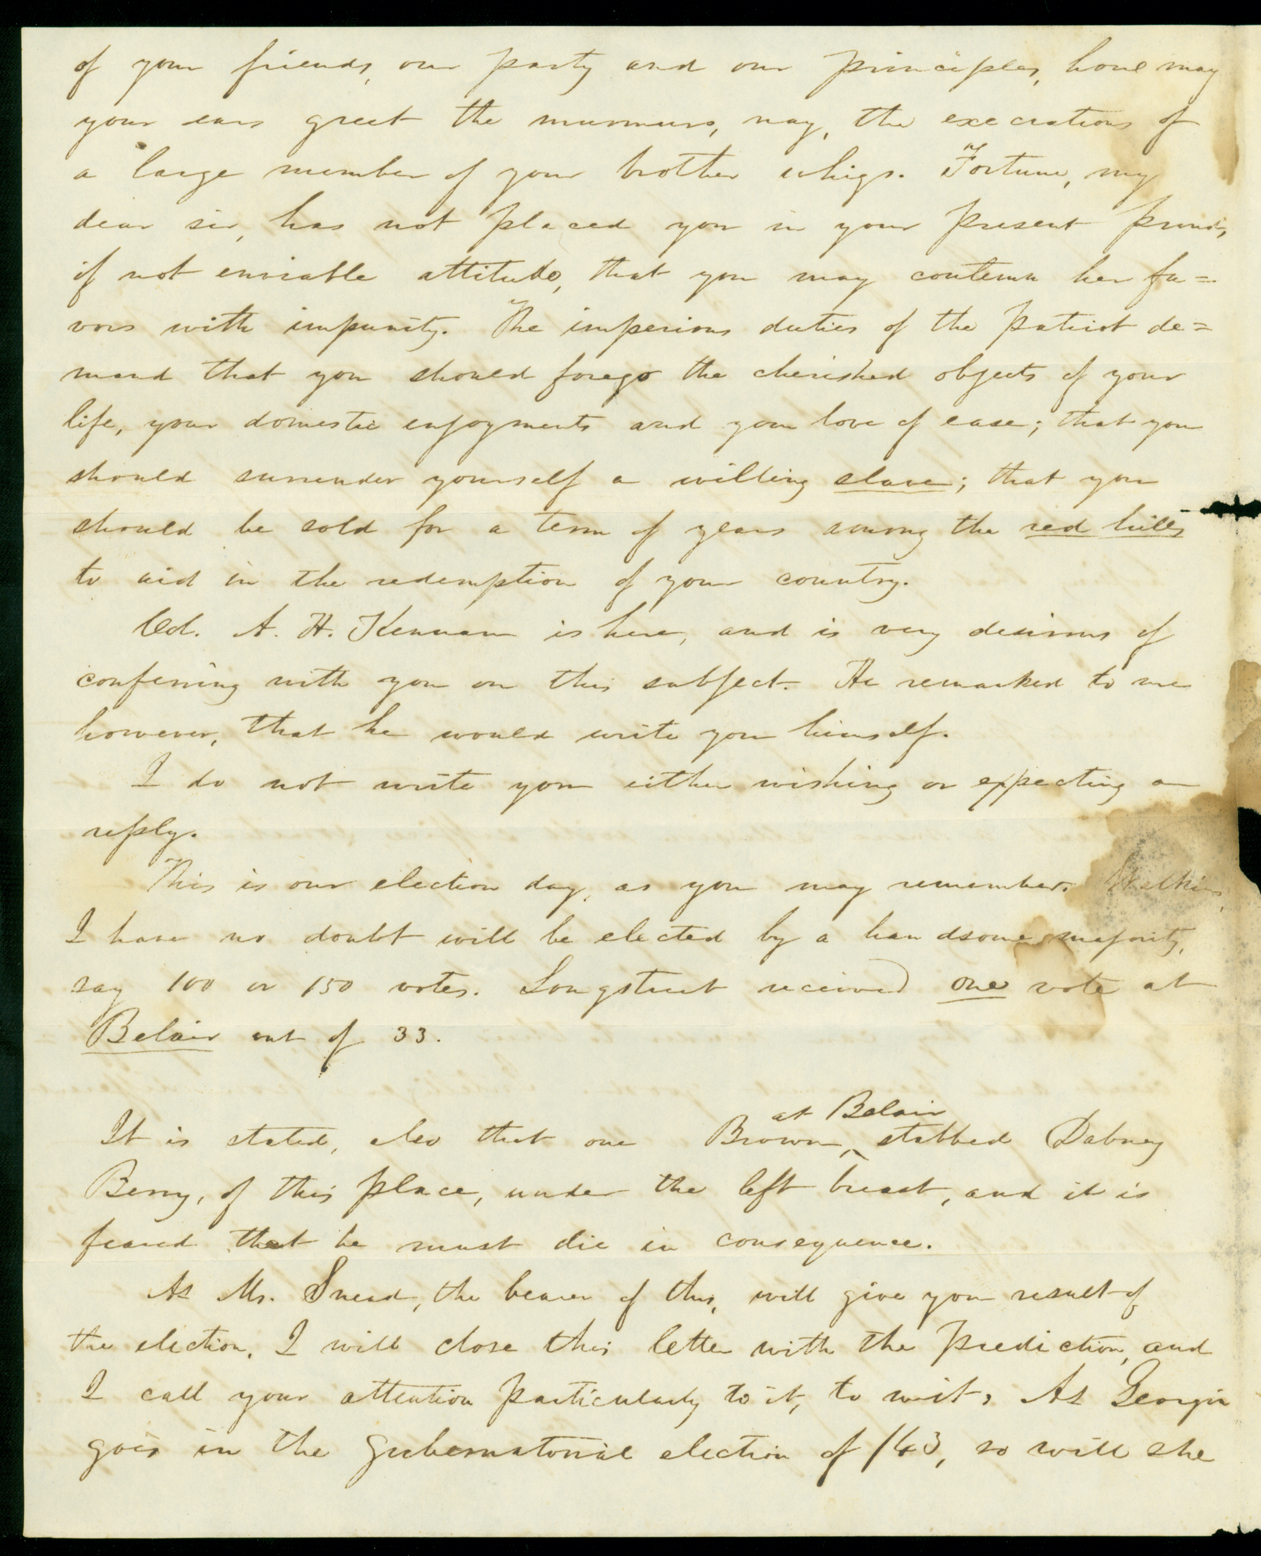 of your friends, our party and our principles, how may
your ears greet the murmurs, nay, the execrations of
a large number of your brother whigs. Fortune, my
dear sir, has not placed you in your present proud,
if not enviable attitude, that you may contemn her fa=
vors with impunity. The imperious duties of the patriot de=
mand that you should forego the cherished objects of your
life, your domestic enjoyments and your love of ease; that you
should surrender yourself a willing slave; that you
should be sold for a term of years among the red hills
to aid in the redemption of your country.
Col. A. H. Kennan is here, and is very desirous of
conferring with you on this subject. He remarked to me
however, that he would write you himself.
I do not write you either wishing or expecting a
reply.
This is our election day, as you may remember.
I have no doubt will be elected by a handsome majority,
say 100 or 150 votes. Longstreet received one vote at
Belair out of 33.
It is stated, also that one Brown, at Belair stabbed Dabney
Berry, of this place, under the left breast, and it is
feared that he must die in consequence.
As Mr. Snead, the bearer of this, will give you result of
the election, I will close this letter with the prediction, and
I call your attention particularly to it, to wit, As Georgia
goes in the gubernatorial election of /43, so will she